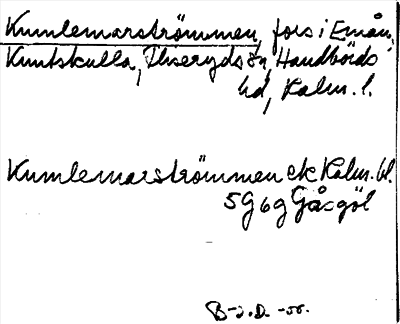 Kumlemarströmmen, fors i Emån,
Kuntskulla, Fliseryds sn, Handbörds
hd, Kalm. l.
Kumlemarströmmen ek Kalm. bl.
5G6g Gåsgöl
B-j.D. -55.